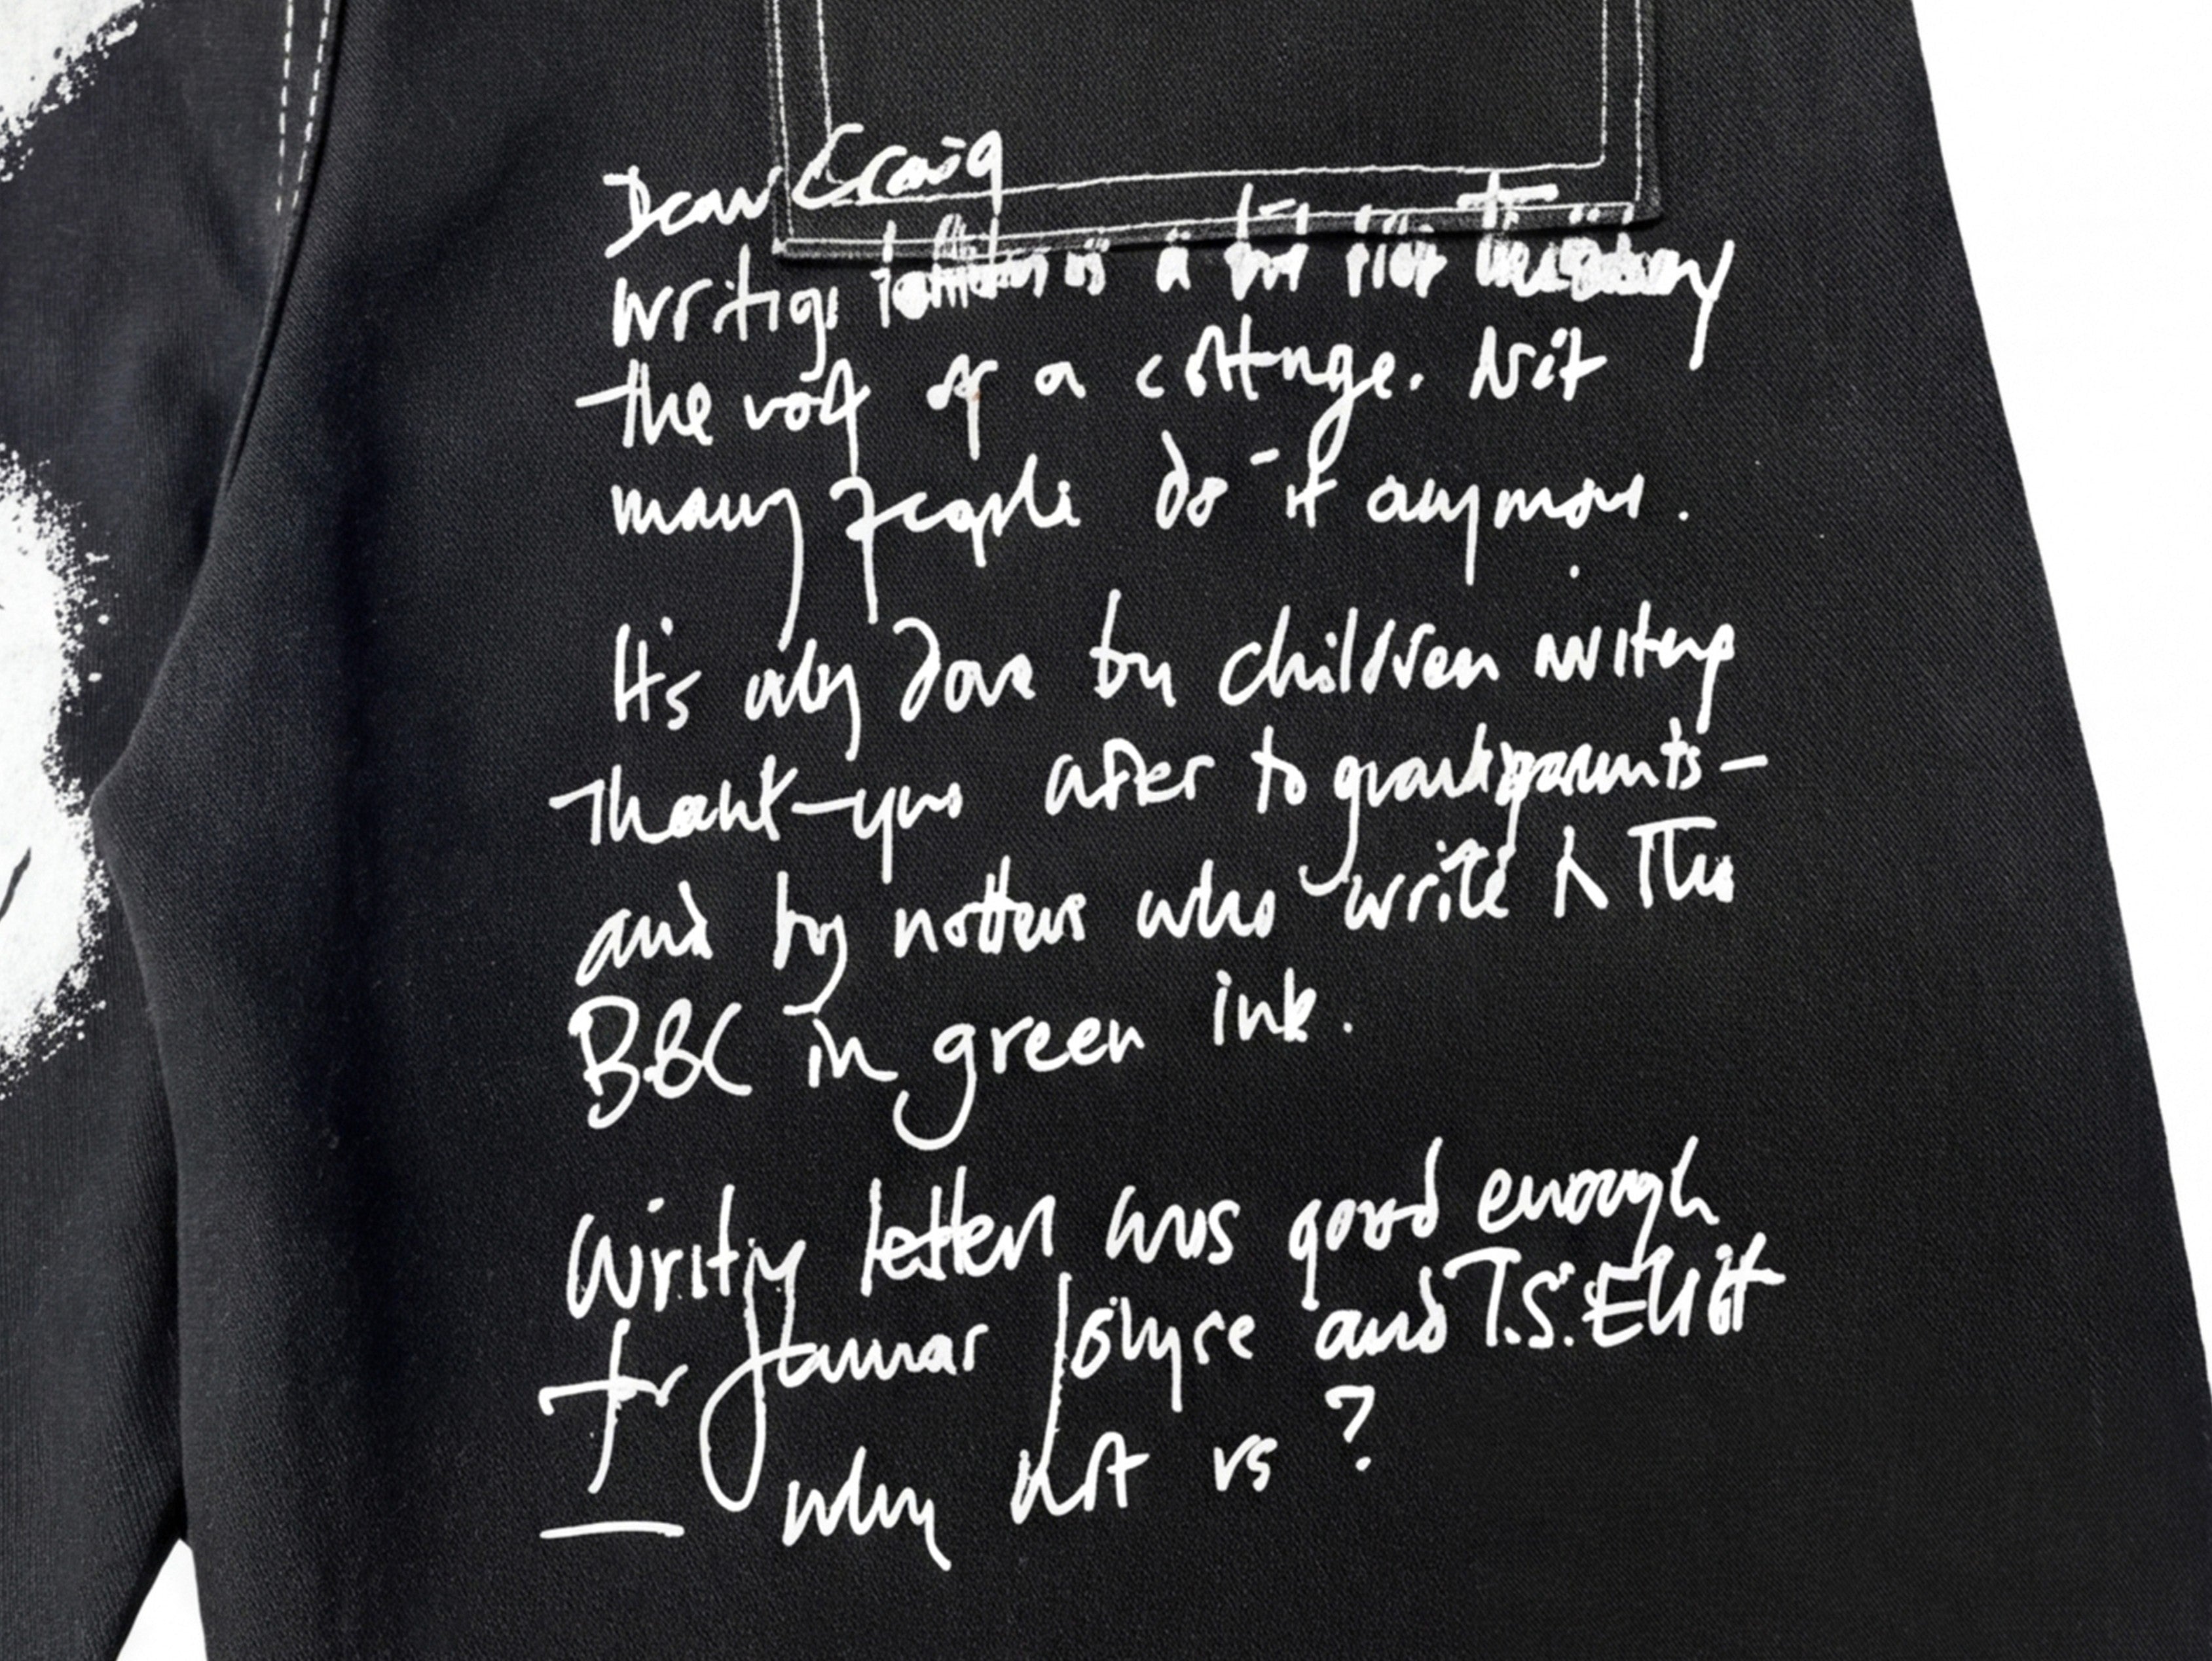 Dear Craig
Writing letters is a bit like
the roof of a cottage. Not
many people do it anymore.
It's only done by children writing
thank-yous after to grandparents -
and by nutters who write to the
BBC in green ink.
Writing letters was good enough
for Joyce and T.S. Eliot
why not us?